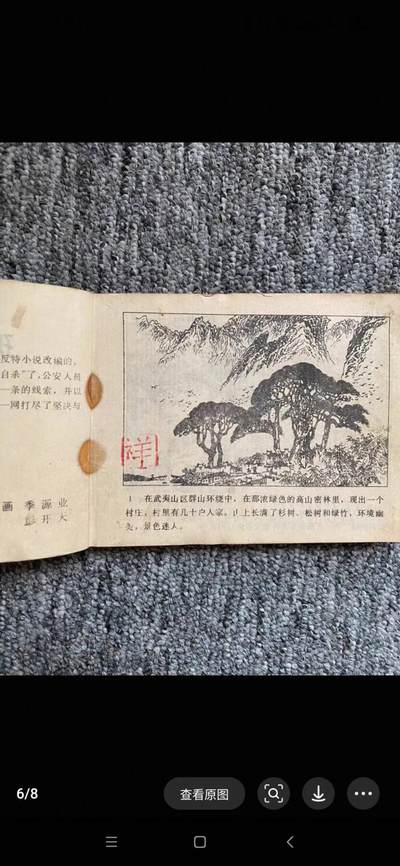 反特小说改编的，
自杀”了，公安人员
一条的线索，并以
一网打尽了坚决与
画 季源业
彭开天
祥
1 在武夷山区群山环绕中，在那浓绿色的高山密林里，现出一个
村庄。村里有几十户人家。山上长满了杉树、松树和绿竹，环境幽
美，景色迷人。
6/8
查看原图